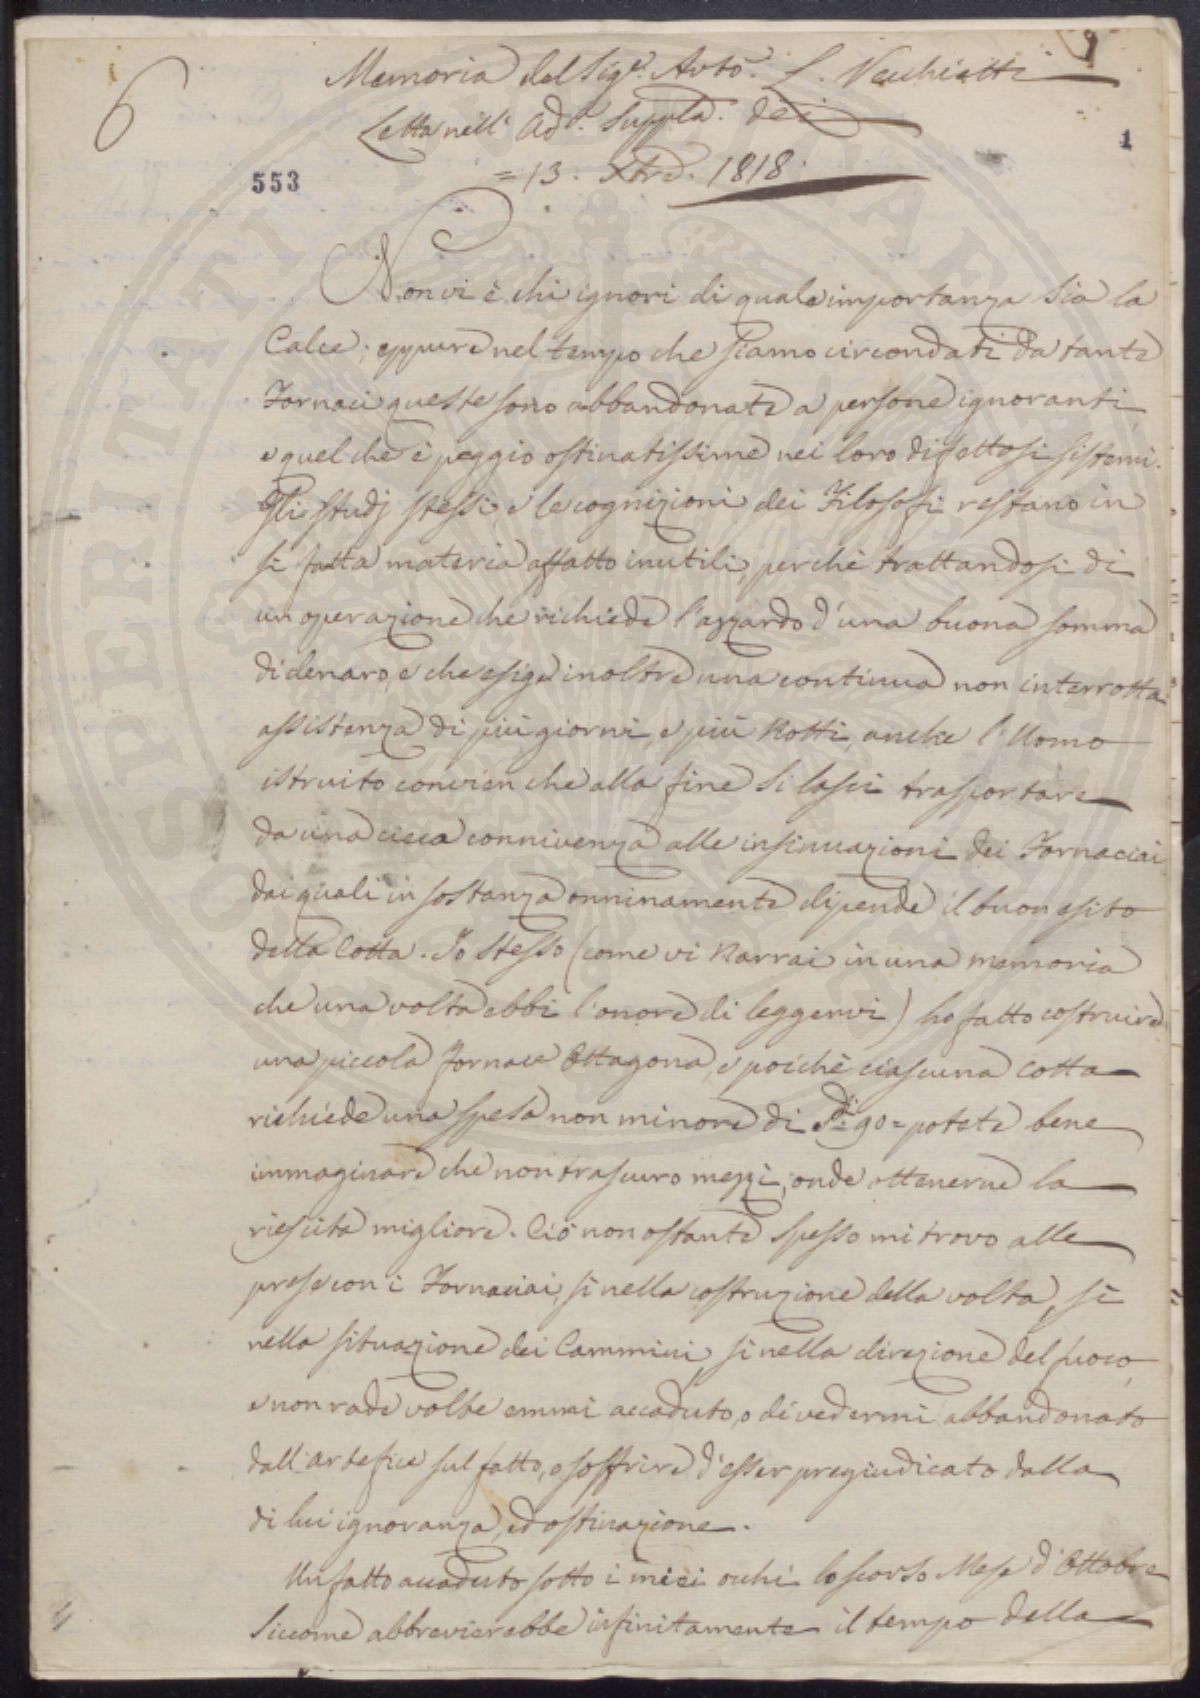 6
Memoria del Sig.r Avto. L. Vecchietti
Letta nell' Ad.a Suppl.a dei
= 13. Xbre. 1818.
1
553
Non vi è chi ignori di quale importanza sia la
Calce; eppure nel tempo che siamo circondati da tante
Fornaci queste sono abbandonate a persone ignoranti,
e quel che è peggio ostinatissime nei loro difettosi sistemi.
Gli studj stessi, e le cognizioni dei Filosofi restano in
sì fatta materia affatto inutili, perchè trattandosi di
un operazione che richiede l'azzardo d'una buona somma
di denaro, e che esige inoltre una continua non interrotta
assistenza di più giorni, e più Notti, anche l'Uomo
istruito convien che alla fine si lasci trasportare
da una cieca connivenza alle insinuazioni dei Fornaciai
dai quali in sostanza onninamente dipende il buon esito
della Cotta. Io stesso (come vi Narrai in una memoria
che una volta ebbi l'onore di leggervi) ho fatto costruire
una piccola Fornace Ottagona, e poichè ciascuna Cotta
richiede una spesa non minore di S.di 90= potete bene
immaginare che non trascuro mezzi, onde ottenerne la
riescita migliore. Ciò non ostante spesso mi trovo alle
prese con i Fornaciai, sì nella costruzione della volta, sì
nella situazione dei Cammini, sì nella direzione del fuoco,
e non rade volte emmi accaduto, o di vedermi abbandonato
dall'artefice sul fatto, o soffrire d'esser pregiudicato dalla
di lui ignoranza, ed ostinazione.
Un fatto accaduto sotto i miei occhi lo scorso Mese d'Ottobre
siccome abbrevierebbe infinitamente il tempo della